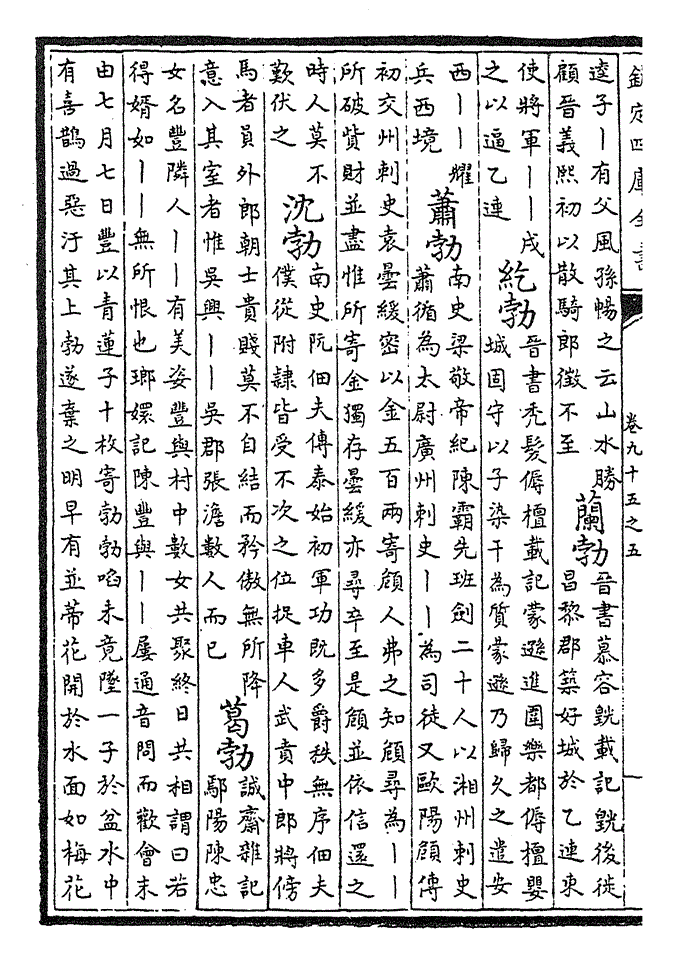 欽定四庫全書
卷九十五之五
一
逵子丨有父風孫暢之云山水勝
顧晉義熙初以散騎郎徵不至
蘭勃
晉書慕容皝載記皝後徙
昌黎郡築好城於乙連東
使將軍丨丨戍
之以逼乙連
紇勃
晉書禿髮傉檀載記蒙遜進圍樂都傉檀嬰
城固守以子染干為質蒙遜乃歸久之遣安
西丨丨耀
兵西境
蕭勃
南史梁敬帝紀陳霸先班劍二十人以湘州刺史
蕭循為太尉廣州刺史丨丨為司徒又歐陽頠傳
初交州刺史袁曇緩密以金五百兩寄頠人弗之知頠尋為丨丨
所破貲財並盡惟所寄金獨存曇緩亦尋卒至是頠並依信還之
時人莫不
歎伏之
沈勃
南史阮佃夫傳泰始初軍功既多爵秩無序佃夫
僕從附隸皆受不次之位捉車人武賁中郎將傍
馬者員外郎朝士貴賤莫不自結而矜傲無所降
意入其室者惟吳興丨丨吳郡張澹數人而已
葛勃
誠齋雜記
鄢陽陳忠
女名豐隣人丨丨有美姿豐與村中數女共聚終日共相謂曰若
得婿如丨丨無所恨也瑯嬛記陳豐與丨丨屢通音問而歡會未
由七月七日豐以青蓮子十枚寄勃勃啗未竟墜一子於盆水中
有喜鵲過惡汙其上勃遂棄之明早有並蒂花開於水面如梅花